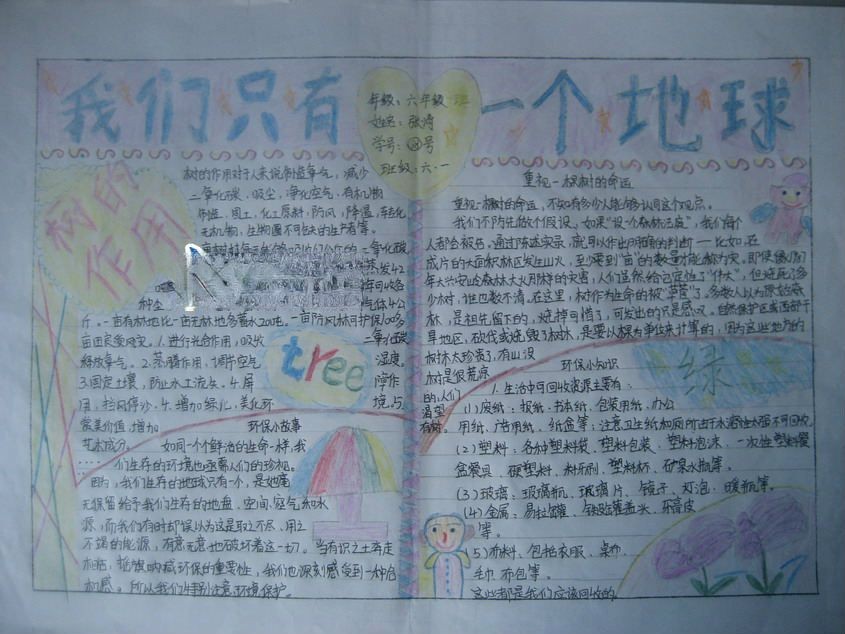 我们只有一个地球
年级：六年级
姓名：张涛
学号：号
班级：六·一
树的作用
树的作用对于人来说制造氧气，减少
二氧化碳，吸尘，净化空气，有机物
制造，固土，化工原料，防风，降温，转化
无机物，生物圈不可缺的生产者等
二氧化碳
斤。一亩有林地比一亩无林地多蓄水20吨。一亩防风林可护保100多
亩田免受风灾。1.进行光合作用，吸收二氧化碳
释放氧气。2.蒸腾作用，调节空气湿度。
3.固定土壤，防止水土流失。4.屏障作
用，挡风停沙。4.增加绿化，美化环境，与
欣美价值，增加
艺术成分。
tree
环保小故事
如同一个个鲜活的生命一样，我
们生存的环境也亟需人们的珍视。
因为，我们生存的地球只有一个，是她毫
无保留给予我们生存的地盘、空间、空气和水
源，而我们有时却误以为这是取之不尽、用之
不竭的能源，有意无意地破坏着这一切。当有识之士奔走
相告，摇旗呐喊环保的重要性，我们也深刻感受到一种危
机感。所以我们特别注意环境保护。
重视一棵树的命运
重视一棵树的命运，不知有多少人能够认同这个观点。
我们不防先做个假设。如果“设一个森林法庭”，我们每个
人都会被告，通过陈述实景，就可以作出明确的判断——比如，在
成片的大面积林区发生山火，至少要到“亩”的数量才能称为灾，即使像87
年大兴安岭森林大火同样的灾害，人们虽然给它定性了“特大”，但烧死了多
少树，谁也数不清。在这里，树作为生命的被“草菅”了。多数人以为原始森
林，是祖先留下的，烧掉可惜了，可发出的只是感叹。自然保护区或西部干
旱地区，砍伐或运毁了树木，是要以棵为单位来计算的，因为这些地方的
树林太珍贵了，有山没
树是很荒凉
的，人们
渴望
有树。
绿
环保小知识
1.生活中可回收资源主要有：
(1)废纸：报纸、书本纸、包装用纸、办公
用纸、广告用纸、纸盒等；注意卫生纸和厕所由于水溶性太强不可回收。
(2)塑料：各种塑料袋、塑料包装、塑料泡沫、一次性塑料餐
盒餐具、硬塑料、料牙刷、塑料杯、矿泉水瓶等。
(3)玻璃：玻璃瓶、玻璃片、镜子、灯泡、暖瓶等。
(4)金属：易拉罐、铁皮罐盖头、牙膏皮
等。
(5)布料，包括衣服、桌布、
毛巾、布包等。
这些都是我们应该回收的。